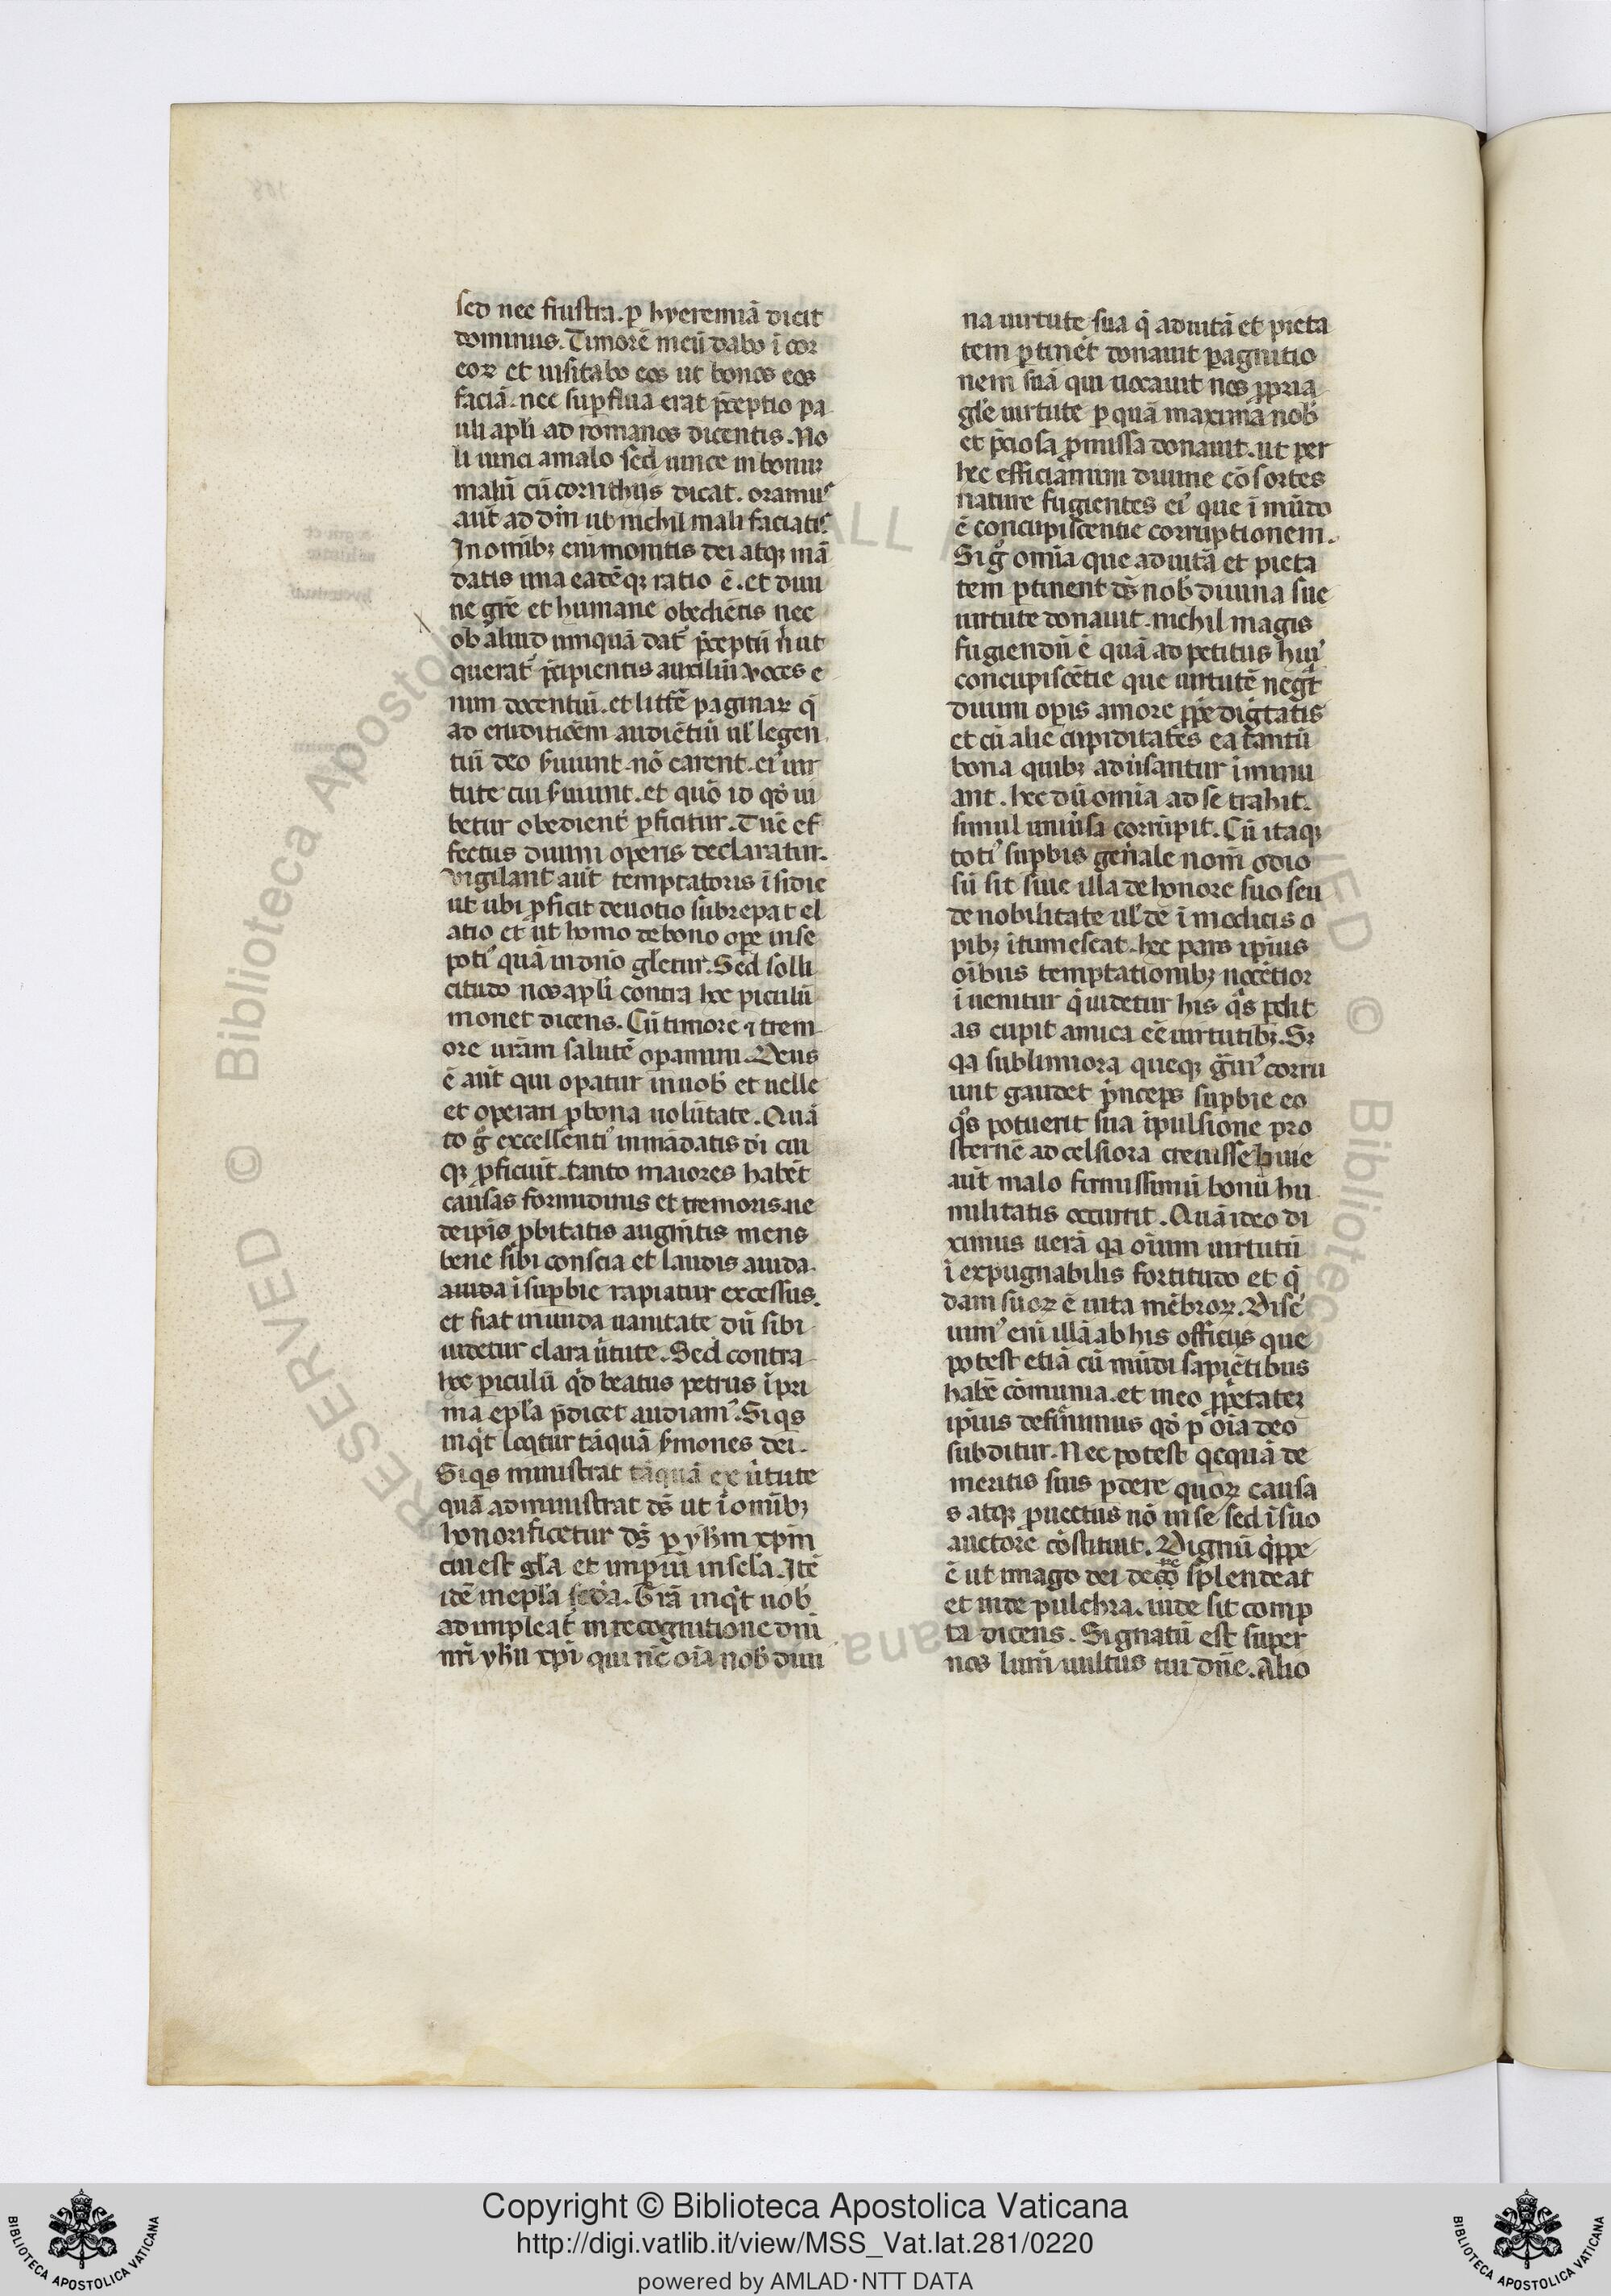 sed nec frustra. ꝑ hyeremiā dicit
dominus. Timorē meū dabo ī cor
eoꝝ et uisitabo eos ut bonos eos
faciā. nec suꝑflua erat p̄ceptio pa
uli apl̄i ad romanos dicentis. No
li uinci a malo sed uince in bonuꝫ
malū cū corīthijs dicat. oramus
aut̄ ad dm̄ ut nichil mali faciatis
In omībꝫ eni monitis dei atqꝫ mā
datis una eadēqꝫ ratio ē. et diui
ne gr̄e et humane obediētis nec
ob aliud umquā dat̄ p̄ceptū n̄ ut
querat̄ p̄cipientis auxiliū uoces e
nim docentiū. et litt̄e paginaꝝ q̄
ad eruditiōem audiētiū ul̓ legen
tiū deo ẜuiunt. nō carent. eiꝰ uir
tute cui ẜuiunt. et quō id qd̓ iu
betur obedient̓ ꝑficitur. Tūc ef
fectus diuini operis declaratur.
Vigilant aut̄ temptatoris īsidie
ut ubi ꝓficit deuotio subrepat el
atio et ut homo de bono oꝑe in se
potiꝰ quā in dn̄o gl̄etur. Sed solli
citudo nos apl̄i contra hoc piculū
monet dicens. Cū timore ⁊ trem
ore ur̄am salutē oꝑamini. Deus
ē aut̄ qui oꝑatur in uob̓ et uelle
et operari ꝓ bona uolūtate. Quā
to gͦ excellentiꝰ in mādatis di cui
qꝫ ꝓficiūt. tanto maiores habēt
causas formidinis et tremoris. ne
de ip̄is ꝓbitatis augm̄tis mens
bene sibi conscia et laudis auida
auida ī suꝑbie rapiatur excessus.
et fiat inmūda uanitate dū sibi
uidetur clara ūtute. Sed contra
hoc ꝑiculū qd̓ beatus petrus ī pri
ma epl̄a p̄dicet audiamꝰ. Siqͥs
inqͥt loqͥtur tāquā ẜmones dei.
Siqͥs ministrat tāquā ex ūtute
quā administrat ds̄ ut ī omībꝫ
honorificetur ds̄ ꝑ yhm xp̄m
cui est gl̄a et imꝑiū in sc̄la. Itē
idē in epl̄a scd̄a. Gr̄a inqͥt uob̓
adimpleat̓ in recognitione dn̄i
nr̄i yhu xp̄i qui nc̄ oīa nob̓ diui
na uirtute sua q̄ ad uitā et pieta
tem ꝑtinēt donauit ꝑ agnitio
nem suā qui uocauit nos ꝓpria
gl̄e uirtute ꝑ quā maxima nob̓
et p̄ciosa ꝓmissa donauit. ut per
hec efficiamini diuine cōsortes
nature fugientes eiꝰ que ī mūdo
ē concupiscentie corruptionem.
Si gͦ omīa que ad uitā et pieta
tem ꝑtinent ds̄ nob̓ diuina sue
uirtute donauit. nichil magis
fugiendū ē quā ad petitus huiꝰ
concupiscētie que uirtutē neg̓t
diuini oꝑis amore ꝓpͥe digͥtatis
et cū alie cupiditates ea tantū
bona quibꝫ adūsantur īminu
ant. hec dū omīa ad se trahit.
simul uniūsa corrūpit. Cū itaqꝫ
totiꝰ suꝑbis gen̄ale nom̄ odio
sū sit siue illa de honore suo seu
de nobilitate ul̓ de ī modicis o
pibꝫ ītumescat. hec pars ip̄ius
oībus temptationibꝫ nocētior
ī uenitur q̄ uidetur his qͦs ꝑdit
as cupit amica eē uirtutibꝫ. Sꝫ
qͥa sublimiora queqꝫ gͣuiꝰ corru
unt gaudet p̄nceps suꝑbie eo
qͦs potuerit sua īpulsione pro
sternē ad celsiora creuisse. huic
aut̄ malo firmissimū bonū hu
militatis occurrit. Quā ideo di
ximus uerā qͥa oīum uirtutū
ī expugnabilis fortitudo et q̄
dam suoꝝ ē uita mēbroꝝ. Disc̄
uimꝰ eni illā ab his officijs que
potest etiā cū mūdi sapiētibus
habē cōmunia. et in eo ꝓpͥetateꝫ
ip̄ius definiuimus qd̓ ꝑ oīa deo
subditur. Nec potest qͥcquā de
meritis suis ꝑdere quoꝝ causa
s atqꝫ ꝓuectus nō in se sed ī suo
auctore cōstituit. Dignū qͥppe
ē ut imago dei decore splendeat
et inde pulchra. inde sit comp
ta dicens. Signatū est super
nos lum̄ uultus tui dn̄e. Alio
Copyright © Biblioteca Apostolica Vaticana
http://digi.vatlib.it/view/MSS_Vat.lat.281/0220
powered by AMLAD·NTT DATA
BIBLIOTECA APOSTOLICA VATICANA
BIBLIOTECA APOSTOLICA VATICANA